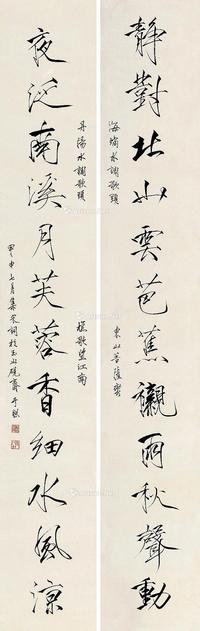 靜對北山雲芭蕉襯雨秋聲動
水調歌頭
東山菩薩蠻
夜泛南溪月芙蓉香細水風涼
丹陽水調歌頭
樵歌望江南
甲申七月集宋詞於玉